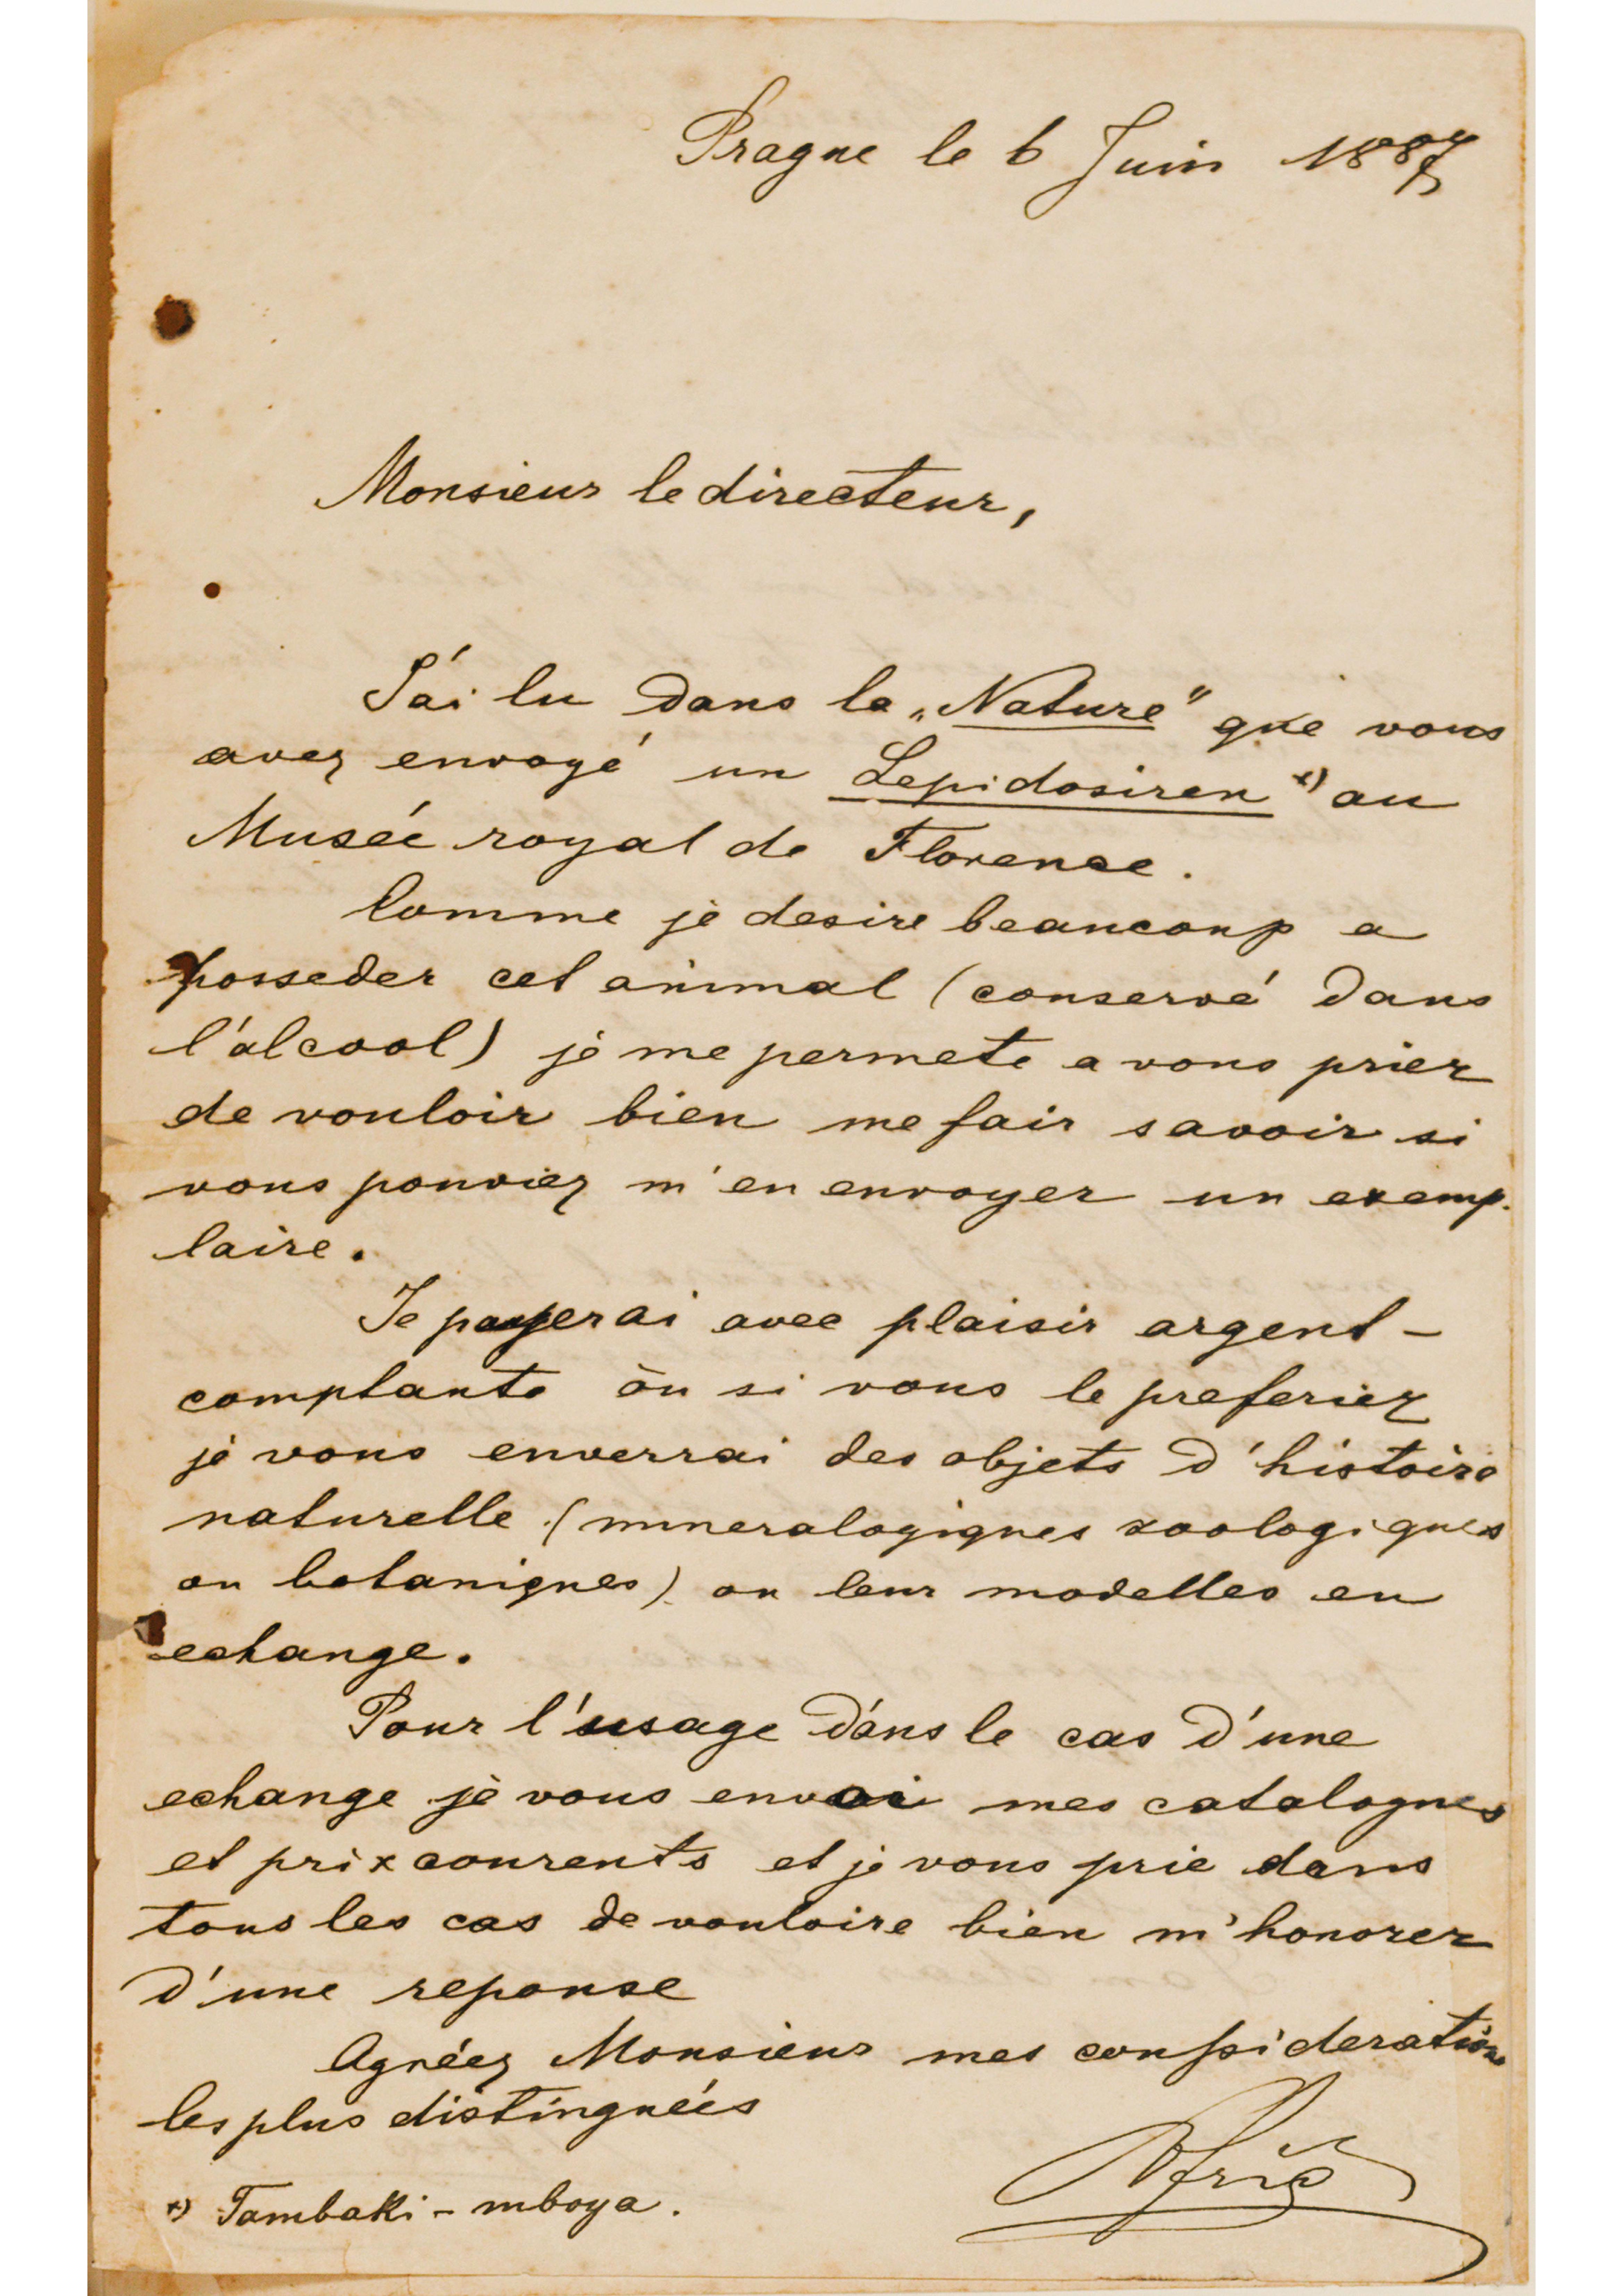 Prague le 6 Juin 1887
Monsieur le directeur,
J'ái lu dans la „Nature" que vous
avez envoyé un Lepidosiren x) au
Musée royal de Florence.
Comme je desire beaucoup a
posseder cet animal (conservé dans
l'alcool) je me permets a vous prier
de vouloir bien me fair savoir si
vous pouviez m'en envoyer un exemp-
laire.
Je payerai avec plaisir argent-
comptants òu si vous le preferiez
je vous enverrai des objets d'histoire
naturelle (mineralogiques zoologiques
ou botaniques) ou leur modelles en
echange.
Pour l'usage dans le cas d'une
echange je vous envoi mes catalogues
et prix courents et je vous prie dans
tous les cas de vouloire bien m'honorer
d'une reponse
Agréez Monsieur mes consideration
les plus distinguées
x) Tambaki-mboya.
Frič